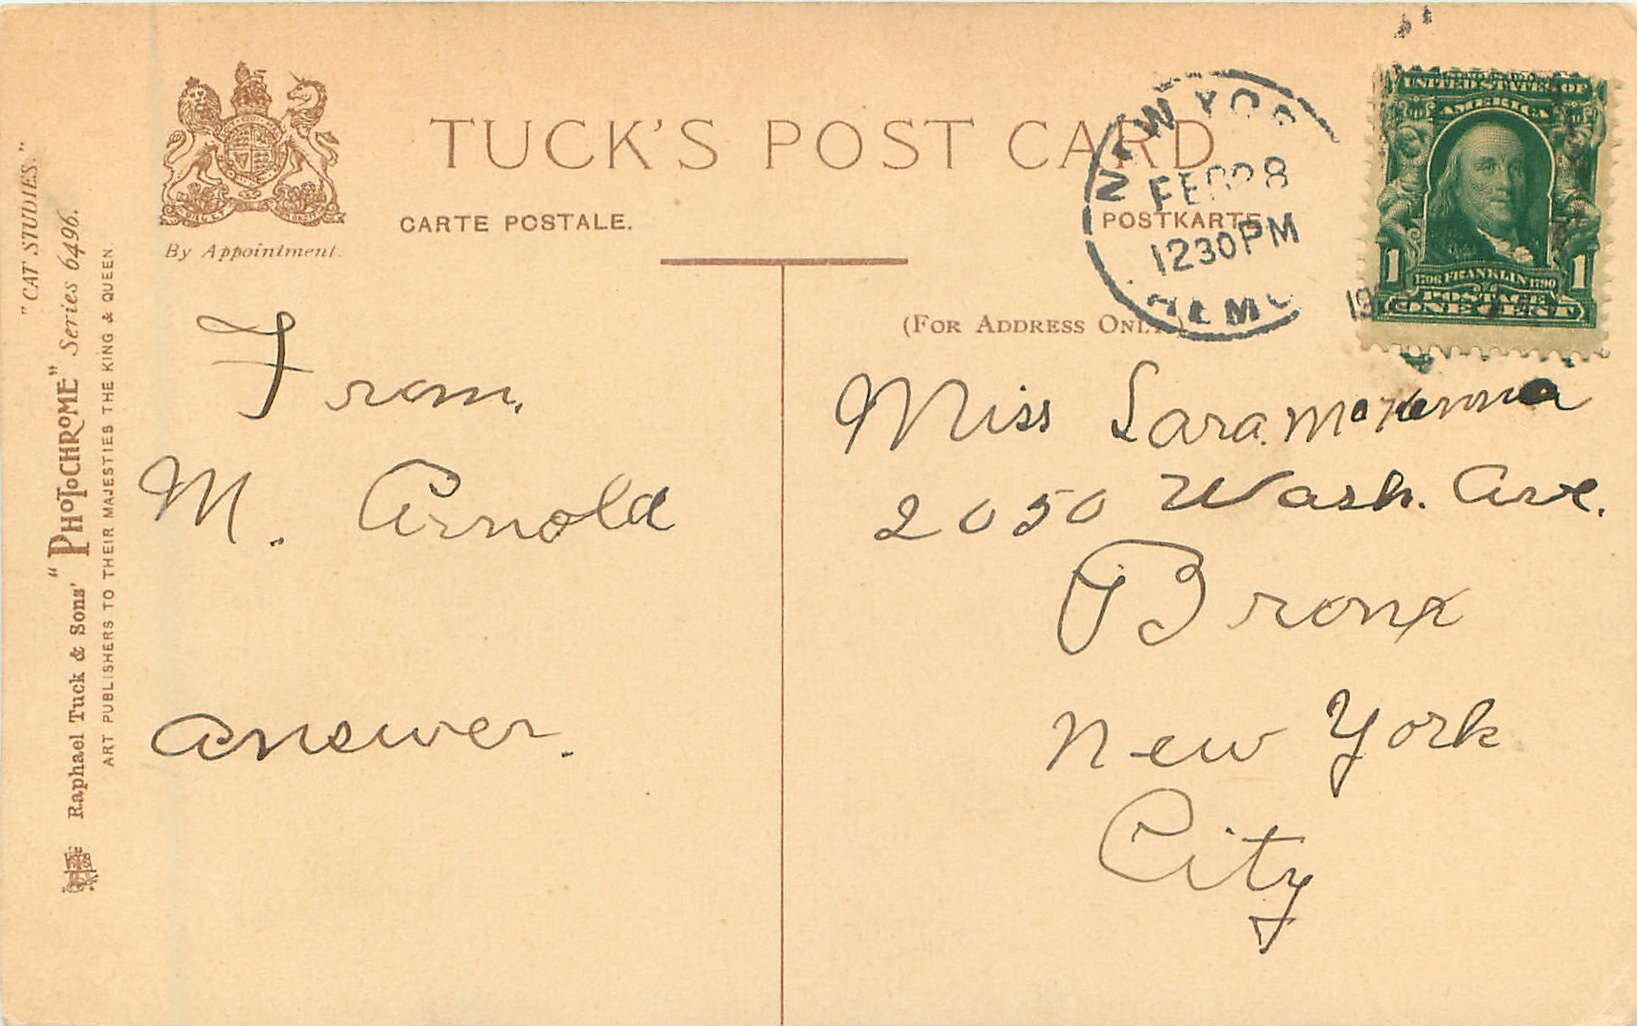 "CAT STUDIES."
"PHOTOCHROME" Series 6496.
Raphael Tuck & Sons'
ART PUBLISHERS TO THEIR MAJESTIES THE KING & QUEEN.
By Appointment.
TUCK'S POST CARD
CARTE POSTALE.
POSTKARTE
(FOR ADDRESS ONLY)
NEW YORK
FEB 28
1230PM
UNITED STATES OF
AMERICA
1 1706 FRANKLIN 1790 1
POSTAGE
ONE CENT
From
M. Arnold
answer.
Miss Sara McKenna
2050 Wash. Ave.
Bronx
New York
City